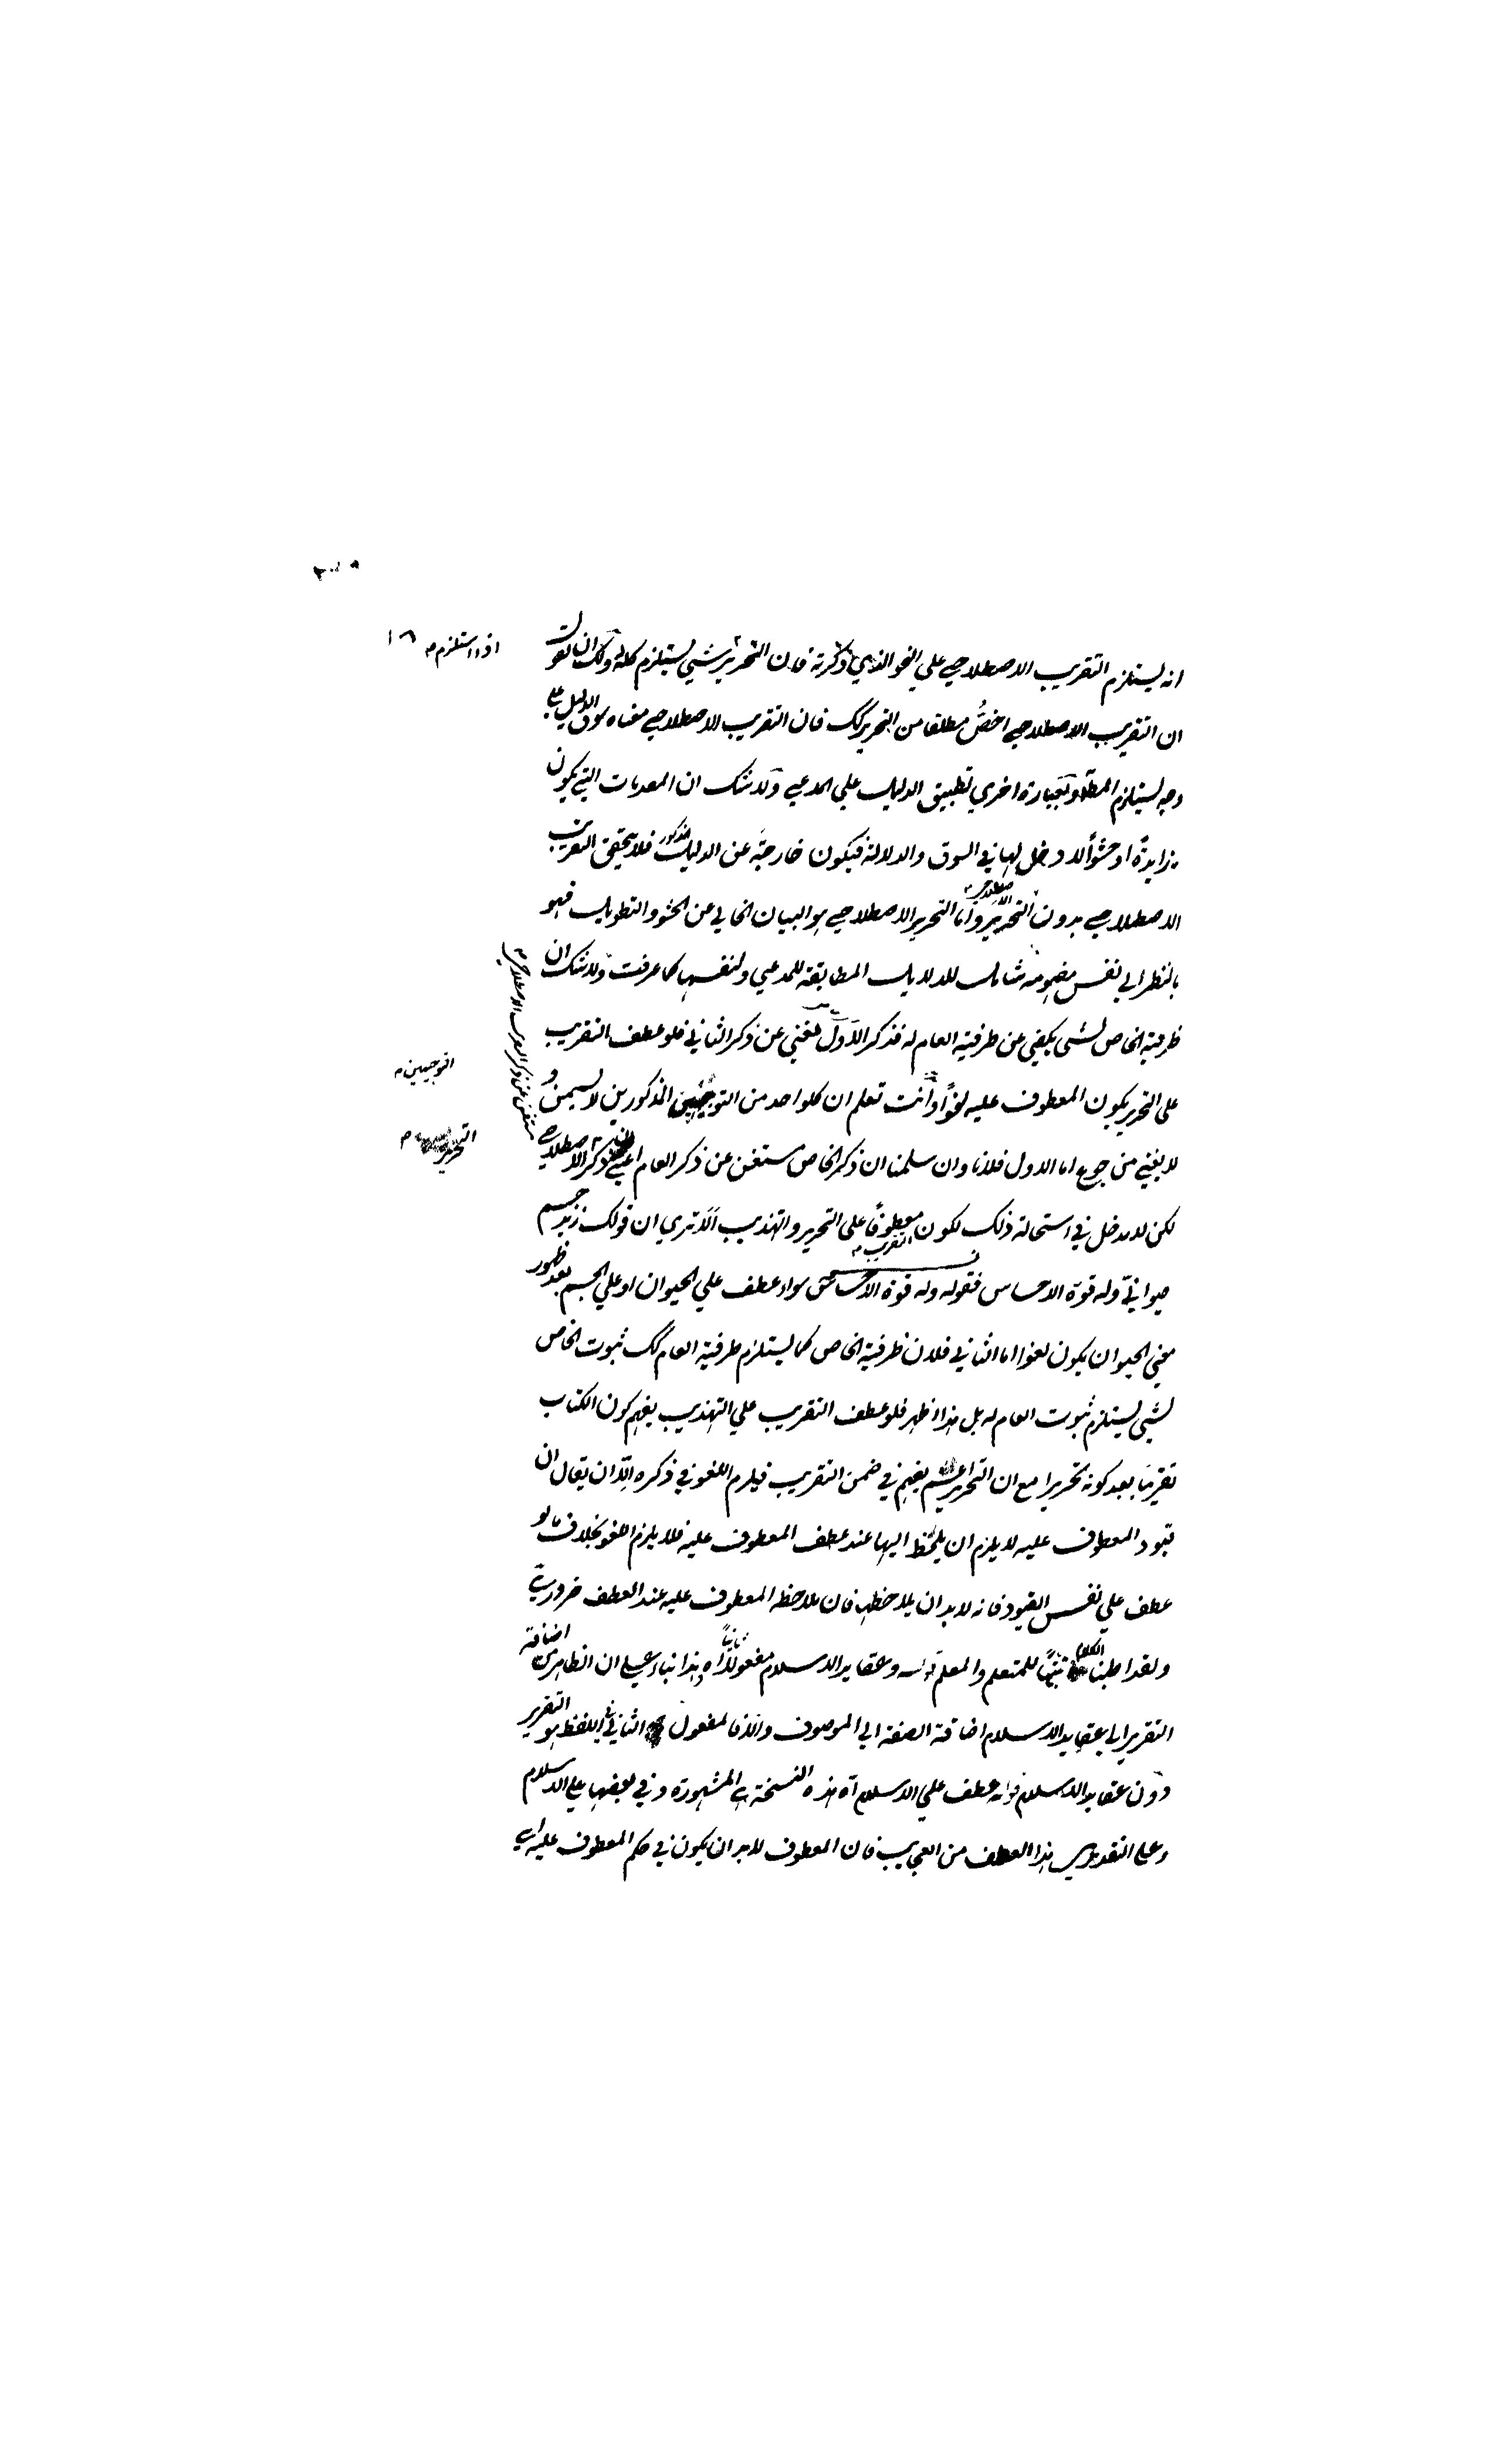 انه يستلزم التقريب الاصطلاحي علي النحو الذي ذكرته فان التحرير شيي يستلزم كله ولك ان تقول
ان التقريب الاصطلاحي اخصُّ مطلقا من التحرير كك فان التقريب الاصطلاحي معناه سوق الدليل علي
وجه يستلزم المطّ وبعبارة اخري تطبيق الدليل علي المدعي ولا شك ان المقدمات التي يكون
زايدةً او حشواً لا دخل لها في السوق والدلالة فيكون خارجيّة عن الدليل فلا يتحقق التقريب
الاصطلاحي بدون التحرير واما التحرير الاصطلاحي هو البيان الخالي عن الحشو والتطويل فهو
بالنظر الي نفس مفهومه شامل للدلايل المطابقة للمدعي ولنفسها كما عرفت ولا شك ان
ظرفية الخاص لشي يكفي عن ظرفية العام له فذكر الاول مغني عن ذكر الثاني فلو عطف التقريب
علي التحرير يكون المعطوف عليه لغواً وانت تعلم ان كلواحد من التوجيهين المذكورين لا يسمن و
لا يغني من جوع اما الاول فلانا وان سلمنا ان ذكر الخاص مستغن عن ذكر العام اعني ذكر الاصطلاحي
لكن لا مدخل في استحالة ذلك لكون معطوفًا علي التحرير والتهذيب الا تري ان قولك زيد جسم
حيواني وله قوة الاحساس فقوله وله قوة الاحساس سواء عطف علي الحيوان او علي الجسم بعد ظهور
معني الحيوان يكون لغوا اما الثاني فلان ظرفية الخاص كما يستلزم ظرفية العام كك ثبوت الخاص
لشيي يستلزم ثبوت العام له بل هذا اظهر فلو عطف التقريب علي التهذيب يفهم كون الكتاب
تقريبا بعد كونه تحريرا مع ان التحرير يفهم في ضمن التقريب فيلزم اللغو في ذكره الا ان يقال ان
قيود المعطوف عليه لا يلزم ان يلحظ اليها عند عطف المعطوف عليه فلا يلزم اللغو بخلاف ما لو
عطف علي نفس القيود فانه لا بد ان يلاحظها فان ملاحظة المعطوف عليه عند العطف ضروري
ولقد اطنبنا الكلام تنبيهًا للمتعلم والمعلم قوله وعقايد الاسلام مفعولا ثانياً اه هذا بناء علي ان الظاهر من اضافة
التقرير الي عقايد الاسلام اضافة الصفة الي الموصوف والا فالمفعول الثاني في اللفظ هو التقرير
دون عقايد الاسلام قوله عطف علي الاسلام آه هذه النسخة هي المشهورة وفي بعضها علي الاسلام
وعلي التقديرين هذا العطف من العجايب فان المعطوف لا بد ان يكون في حكم المعطوف عليه
اذا استلزم
التوجيهين